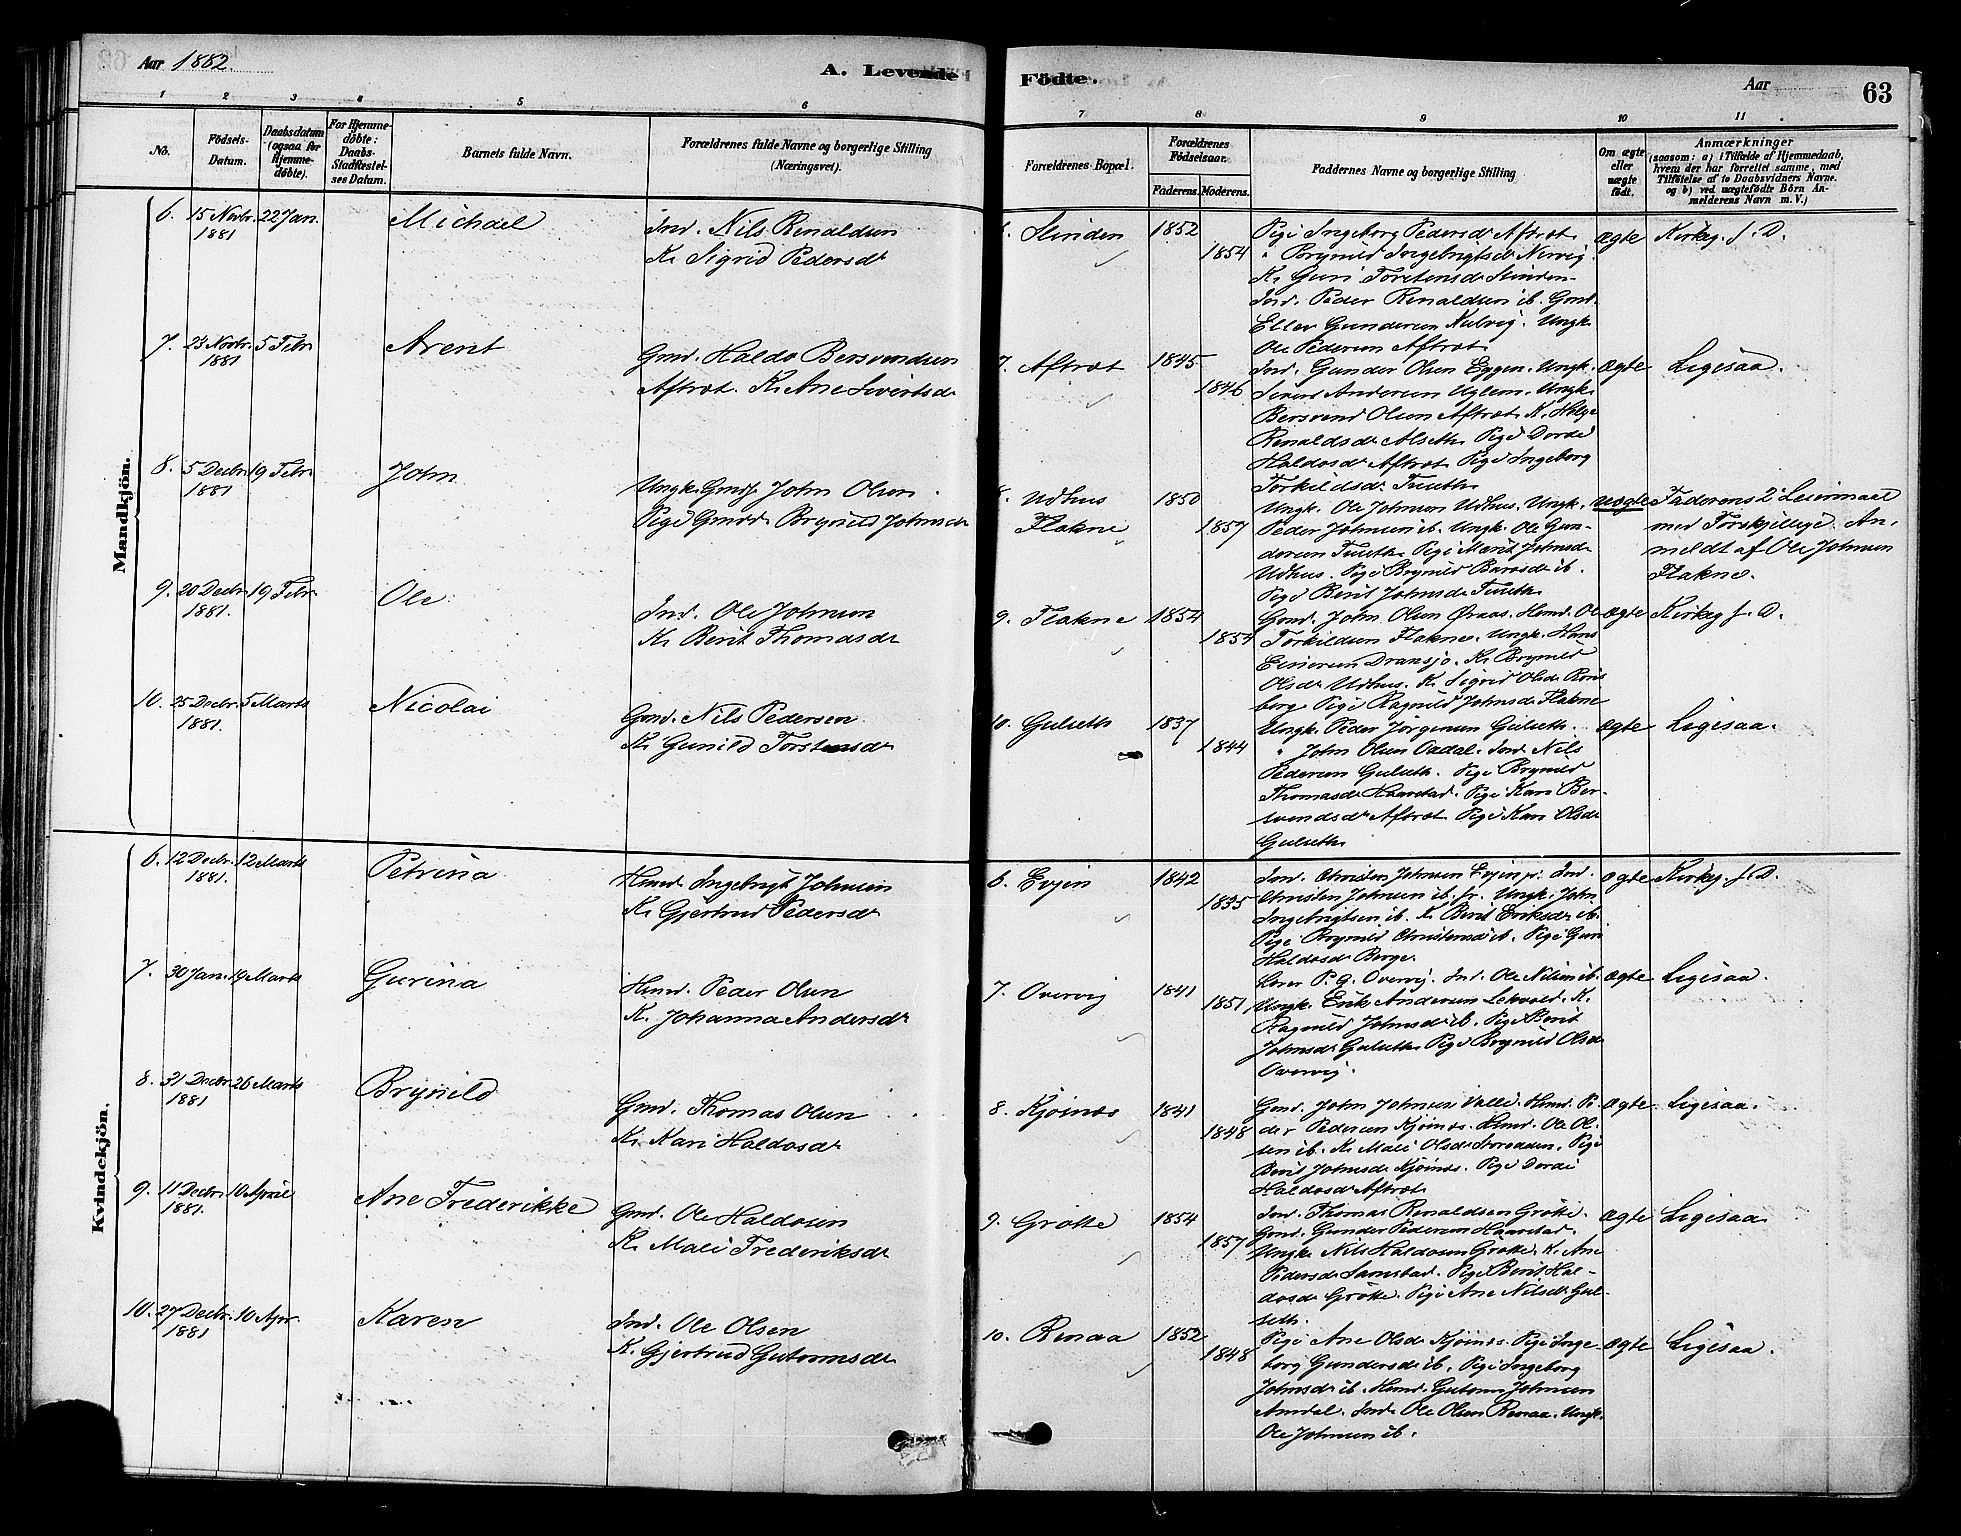 Aar 1882.
A. Levende Födte.
Aar
63
1 2 3 4 5 6 7 8 9 10 11
No.
Födsels-Datum.
Daabsdatum (ogsaa for Hjemmedöbte).
For Hjemmedöbte: Daabs-Stadfæstelses Datum.
Barnets fulde Navn.
Forældrenes fulde Navne og borgerlige Stilling (Næringsvei).
Forældrenes Bopæl.
Forældrenes Födselsaar.
Faderens. Moderens.
Faddernes Navne og borgerlige Stilling
Om ægte eller uægte födt.
Anmærkninger
(saasom: a) i Tilfælde af Hjemmedaab, hvem der har forrettet samme, med Tilföielse af to Daabsvidners Navne, og b) ved uægtefödte Börn Anmelderens Navn m. V.)
Mandkjön.
6. 15 Novbr. 1881 22 Jan. Michael
Ind. Nils Renaldsen
K. Sigrid Pedersdr
6. Slinden 1852 1854
Pige Ingeborg Pedersdr Aftrøt
" Brynild Ingebrigtsdr Nervig
K. Guri Torstensdr Slinden
Ind. Peder Renaldsen ib. Gmd.
Ellev Gundersen Kulvig. Ungk.
Ole Pedersen Aftrøt
ægte Kirkeg. f. D.
7. 23 Novbr. 1881 5 Febr. Arent
Gmd. Haldo Bersvendsen
Aftrøt. K. Ane Sivertsdr
7. Aftrøt 1845 1846
Ind. Gunder Olsen Eggen. Ungk.
Sivert Andersen Uglem. Ungk.
Bersvend Olsen Aftrøt. K. Helge
Renaldsdr Alseth. Pige Dordi
Haldosdr Aftrøt. Pige Ingeborg
Torkildsdr Tuseth
ægte Ligesaa.
8. 5 Decbr. 1881 19 Febr. John
Ungk. Gmds. John Olsen
Pige Gmdd. Brynild Johnsdr
8. Udhus Flakne 1850 1857
Ungk. Ole Johnsen Udhus. Ungk.
Peder Johnsen ib. Ungk. Ole Gundersen Tuseth. Pige Marit Johnsdr
Udhus. Pige Brynild Barosdr ib.
Pige Berit Johnsdr Tuseth
uægte Faderens 2' Leiermaal
med Forskjellige. Anmeldt af Ole Johnsen
Flakne.
9. 20 Decbr. 1881. 19 Febr. Ole
Ind. Ole Johnsen
K. Berit Thomasdr
9. Flakne 1854 1854
Gmd. John Olsen Øraas. Hmd. Ole
Torkildsen Flakne. Ungk. Hans
Einersen Dransjø. K. Brynild
Olsdr Udhus. K. Sigrid Olsdr
Pige Ragnild Johnsdr Flakne
ægte Kirkeg. f. D.
10. 25 Decbr. 1881. 5 Marts Nicolai
Gmd. Nils Pedersen
K. Gunild Torstensdr
10. Gulseth 1837 1844
Ungk. Peder Jørgensen Gulseth.
" John Olsen Aadal. Ind. Nils
Pedersen Gulseth. Pige Brynild
Thomasdr Haarstad. Pige Kari Bersvendsdr Aftrøt. Pige Kari Olsdr
Gulseth
ægte Ligesaa.
Kvindekjön.
6. 12 Decbr. 1881. 12 Marts Petrina
Hmd. Ingebrigt Johnsen
K. Gjertrud Pedersdr
6. Evjen 1842 1835
Ind. Christen Johnsen Evjen sr. Ind.
Christen Johnsen ib. jr. Ungk. John
Ingebrigtsen ib. K. Berit Eriksdr ib.
Pige Brynild Christensdr ib. Pige Guri
Haldosdr Berge.
ægte Kirkeg. f. D.
7. 30 Jan. 14 Marts Gurina
Hmd. Peder Olsen
K. Johanna Andersdr
7. Overvig 1841 1851
Lærer P. G. Overvig. Ind. Ole Nilsen ib.
Ungk. Erik Andersen Lekvold. K.
Ragnild Johnsdr ib. Pige Berit
Johnsdr Gulseth. Pige Brynild Olsdr
Overvig.
ægte Ligesaa.
8. 31 Decbr. 1881 26 Marts Brynild
Gmd. Thomas Olsen
K. Kari Haldosdr
8. Kjøinøs 1841 1848
Gmd. John Johnsen Valli. Hmd. Peder Pedersen Kjøinøs. Hmd. Ole Olsen ib. K. Mali Olsdr. Pige
Berit Johnsdr Kjøinøs. Pige Dordi
Haldosdr Aftrøt
ægte Ligesaa.
9. 11 Decbr. 1881. 10 April Ane Frederikke
Gmd. Ole Haldosen
K. Mali Frederiksdr
9. Grøtte 1854 1857
Ind. Thomas Renaldsen Grøtte.
Gmd. Gunder Pedersen Haarstad.
Ungk. Nils Haldosen Grøtte. K. Ane
Pedersdr Samstad. Pige Berit Haldosdr Grøtte. Pige Ane Nilsdr Gulseth.
ægte Ligesaa
10. 27 Decbr. 1881 10 Apr. Karen
Ind. Ole Olsen
K. Gjertrud Gutormsdr
10. Renaa 1852 1848
Pige Ane Olsdr Kjøinøs. Pige Ingeborg Gundersdr ib. Pige Ingeborg
Johnsdr ib. Hmd. Gutorm Johnsen
Amdal. Ind. Ole Olsen Renaa. Ungk.
Ole Johnsen ib.
ægte Ligesaa.